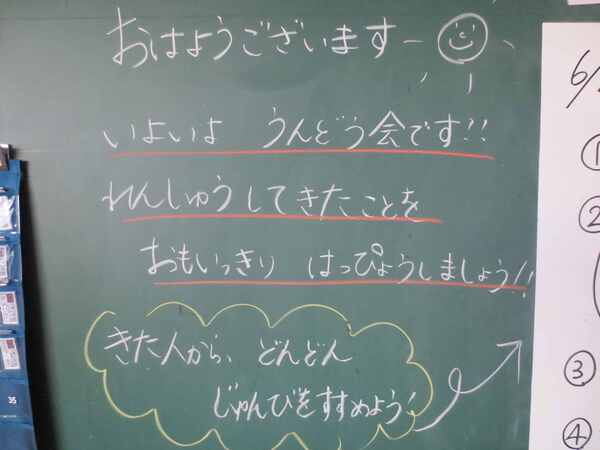 おはようございますー
いよいよ うんどう会です!!
れんしゅうしてきたことを
おもいっきり はっぴょうしましょう!!
きた人から、どんどん
じゅんびをすすめよう!
6/
①
②
③
④
35